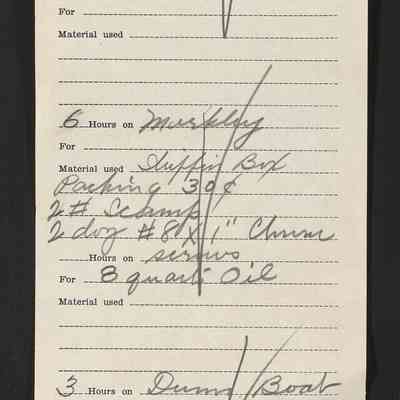 For
Material used
6 Hours on
For
Material used Stuffin Box
Packing 30¢
2#
2 doz #8 X 1" Chrome
Hours on screws
For 8 quarts Oil
Material used
3 Hours on Boat